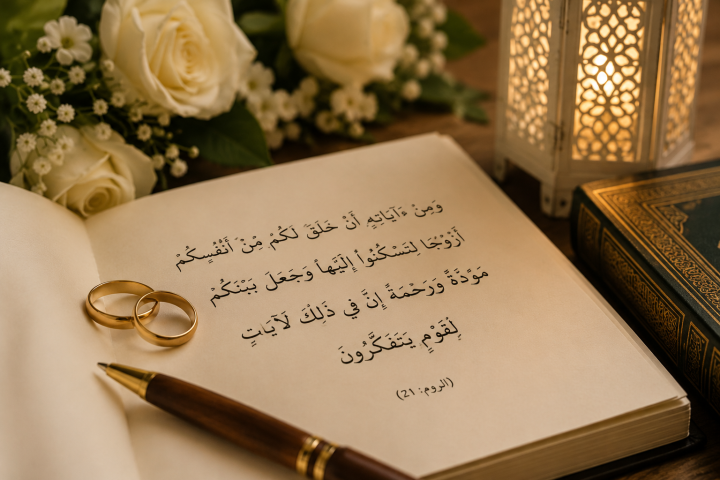 وَمِنْ ءَايَاتِهِ أَنْ خَلَقَ لَكُمْ مِنْ أَنْفُسِكُمْ
أَزْوٰجًا لِتَسْكُنُوا إِلَيْهَا وَجَعَلَ بَيْنَكُمْ
مَوَدَّةً وَرَحْمَةً إِنَّ فِي ذَلِكَ لَآيَاتٍ
لِقَوْمٍ يَتَفَكَّرُونَ
(الروم: 21)